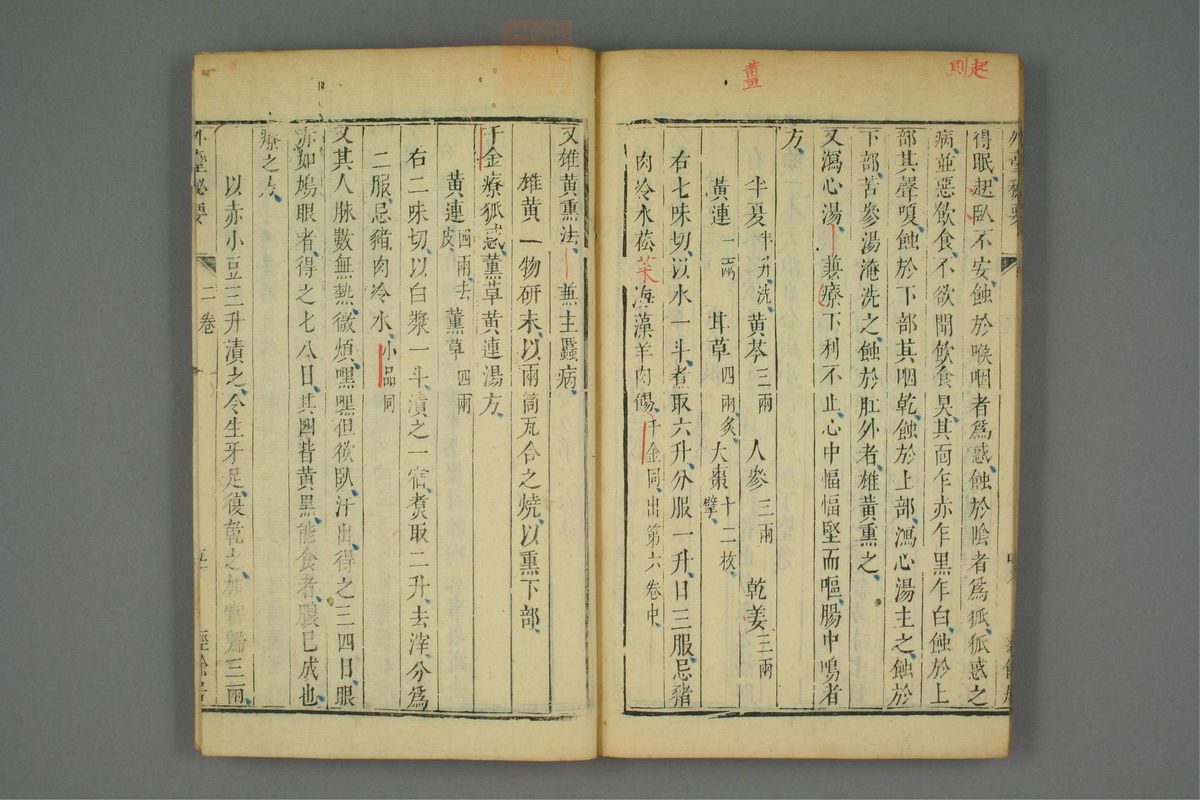 起
則
薑
得眠、起臥不安、蝕於喉咽者為惑、蝕於陰者為狐、狐惑之
病、並惡飲食、不欲聞飲食臭、其面乍赤乍黑乍白、蝕於上
部其聲嗄、蝕於下部其咽乾、蝕於上部、瀉心湯主之、蝕於
下部、苦參湯淹洗之、蝕於肛外者、雄黃熏之、
又瀉心湯、兼療下利不止、心中愊愊堅而嘔、腸中鳴者
方、
半夏半升洗、黃芩三兩 人參三兩 乾姜三兩
黃連一兩 甘草四兩炙、大棗十二枚、擘、
右七味切、以水一斗、煮取六升、分服一升、日三服、忌豬
肉冷水菘菜海藻羊肉餳、千金同、出第六卷中、
又雄黃熏法、兼主䘌病、
雄黃一物研末、以兩筒瓦合之燒、以熏下部、
千金療狐惑、薰草黃連湯方、
黃連四兩、去皮、 薰草四兩
右二味切、以白漿一斗、漬之一宿、煮取二升、去滓、分為
二服、忌豬肉冷水、小品同
又其人脉數無熱、微煩、嘿嘿但欲臥、汗出、得之三四日、眼
赤如鳩眼者、得之七八日、其四眥黃黑、能食者、膿已成也、
療之方、
以赤小豆三升漬之、令生牙足、復乾之、加當歸三兩、
外臺秘要
二卷